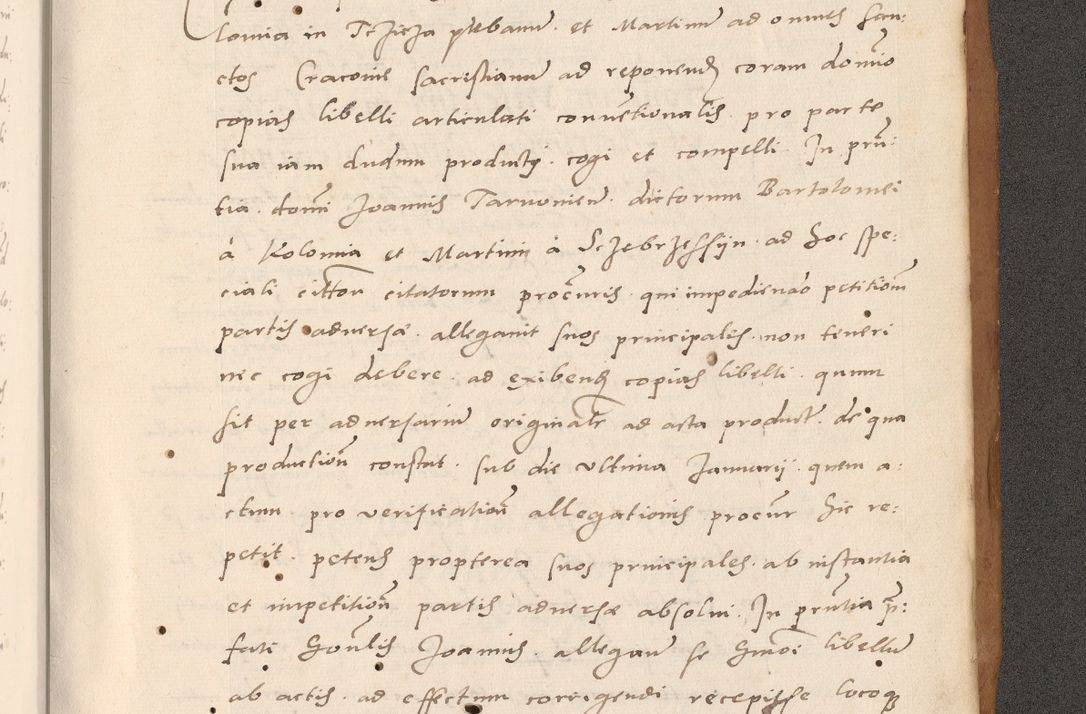 lomia in TcJicJa plebanum et Martinum ad omnes San:
ctos Cracovie sacristianum ad reponendū coram domio
copias libelli articulati conventionalis pro parte
sua iam dudum producty cogi et compelli. In prūn:
tia. domi Joannis Tarvonien. dictorum Bartolomei
à Kolomia et Martini à Sczebrzessyn. ad hoc spe:
ciali cittōn citatorum procūris. qui impediendo petitionē
partis adversæ. allegavit suos principales. non teneri
nec cogi debere. ad exibendū copias libelli. quum
sit per adversarium originalr ad acta product. de qua
productionē constat. sub die ultima Januarij. quem a:
ctum. pro verificationē allegationis procūr hic re:
petit. petens propterea suos principales. ab instantia
et impetitionē partis adversæ absolvi. In prūntia p̄:
fati honūlis Joannis. allegan se hmōi libellum
ab actis. ad effectum corrigendi recepisse locoq̄